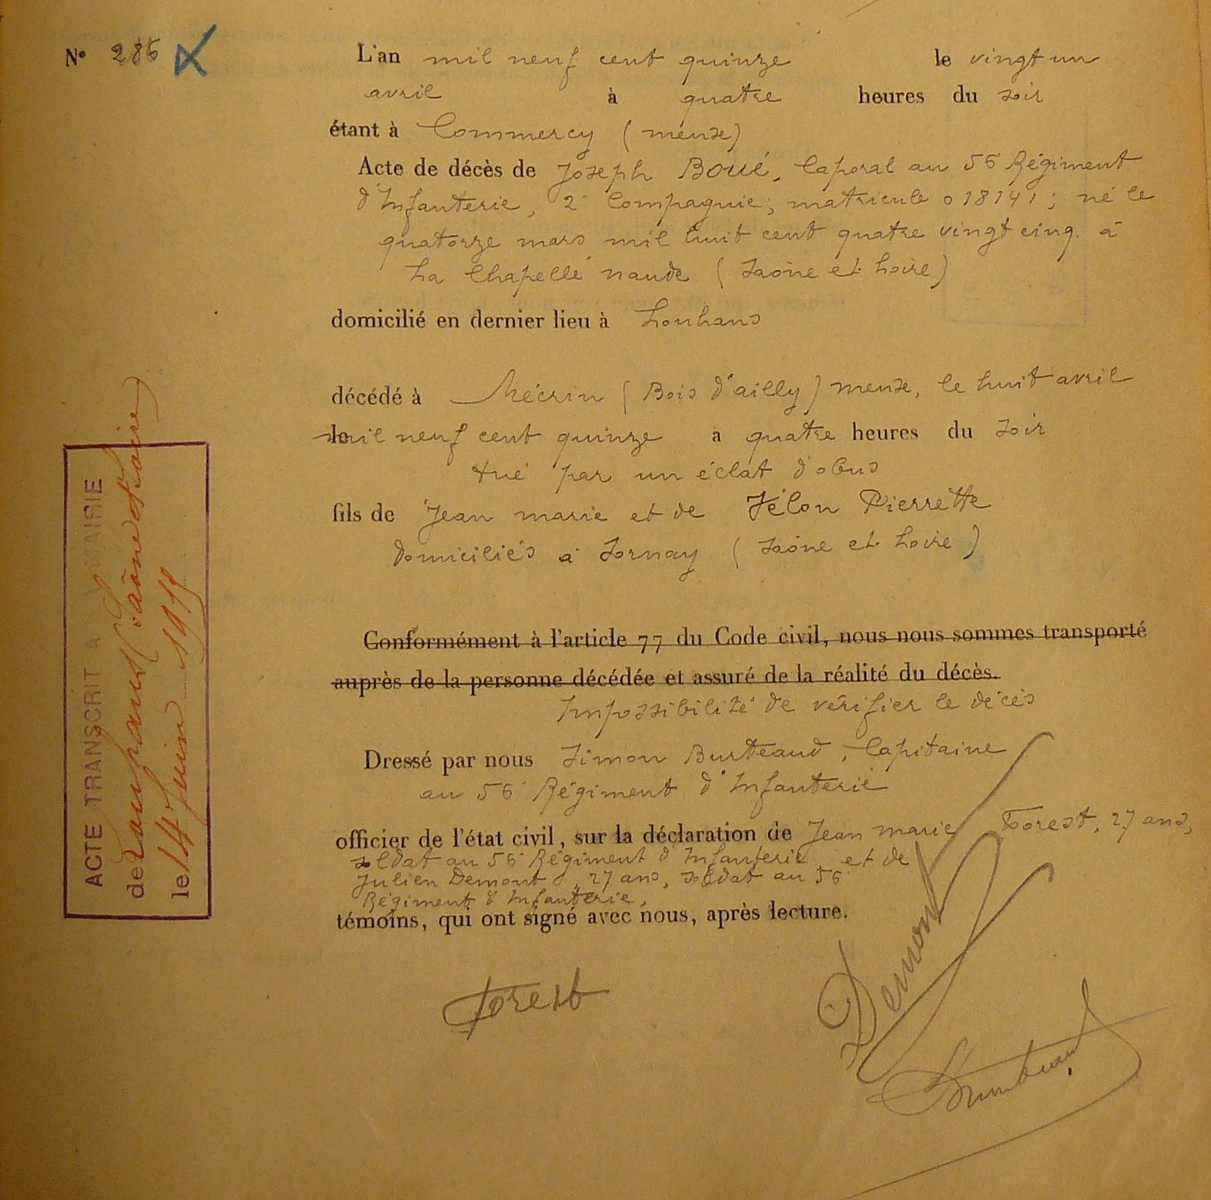 N° 286
L'an mil neuf cent quinze le vingt un
avril à quatre heures du soir
étant à Commercy (meuse)
Acte de décès de Joseph Boué, Caporal au 56 Régiment
d'Infanterie, 2 Compagnie; matricule 018141; né le
quatorze mars mil huit cent quatre vingt cinq à
La Chapelle naude (Saône et Loire)
domicilié en dernier lieu à Louhans
décédé à Mécrin (Bois d'ailly) meuse, le huit avril
le mil neuf cent quinze à quatre heures du soir
tué par un éclat d'obus
fils de Jean marie et de Félon Pierrette
domiciliés à Sornay (Saône et Loire)
Conformément à l'article 77 du Code civil, nous nous sommes transporté
auprès de la personne décédée et assuré de la réalité du décès.
Impossibilité de vérifier le décès
Dressé par nous Simon Burteaud, Capitaine
au 56 Régiment d'Infanterie
officier de l'état civil, sur la déclaration de Jean marie Forest, 27 ans,
soldat au 56 Régiment d'Infanterie et de
Julien Demont, 27 ans, soldat au 56
Régiment d'Infanterie,
témoins, qui ont signé avec nous, après lecture.
Forest
Demont
ACTE TRANSCRIT A LA MAIRIE
de Louhans (Saône et Loire)
le 14 Juin 1915